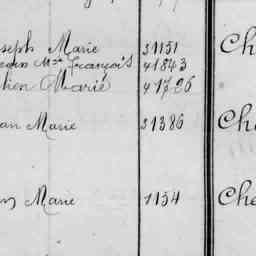 seph Marie 31151 Ch
Mie François 41843
lien Marie 41726
an Marie 31386 Che
Marie 1154 Che